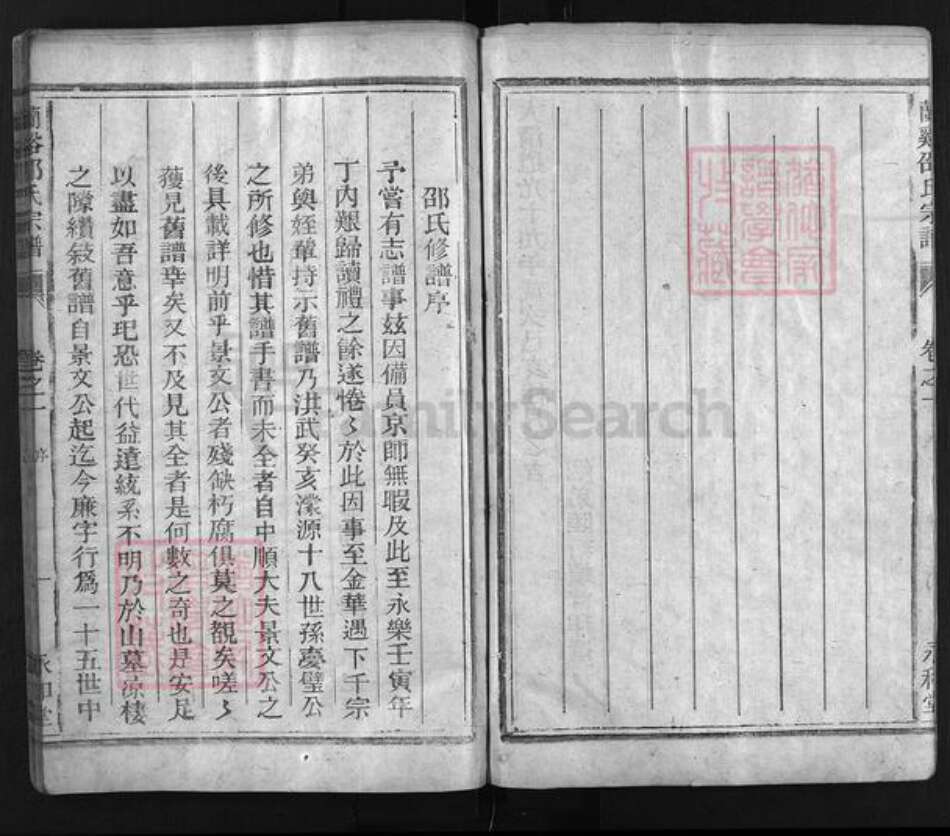 蘭谿邵氏宗譜
卷之一
永和堂
邵氏修譜序
予嘗有志譜事玆因備員京師無暇及此至永樂壬寅年
丁內艱歸讀禮之餘遂惓〻於此因事至金華遇下千宗
弟與姪輩持示舊譜乃洪武癸亥濠源十八世孫慶璧公
之所修也惜其譜手書而未全者自中順大夫景文公之
後具載詳明前乎景文公者殘缺朽腐俱莫之覩矣嗟〻
獲見舊譜幸矣又不及見其全者是何數之奇也是安足
以盡如吾意乎玘恐世代益遠統系不明乃於山墓涼棲
之隙纘敍舊譜自景文公起迄今廉字行爲一十五世中
蘭谿邵氏宗譜
卷之一
序
一
永和堂
FamilySearch